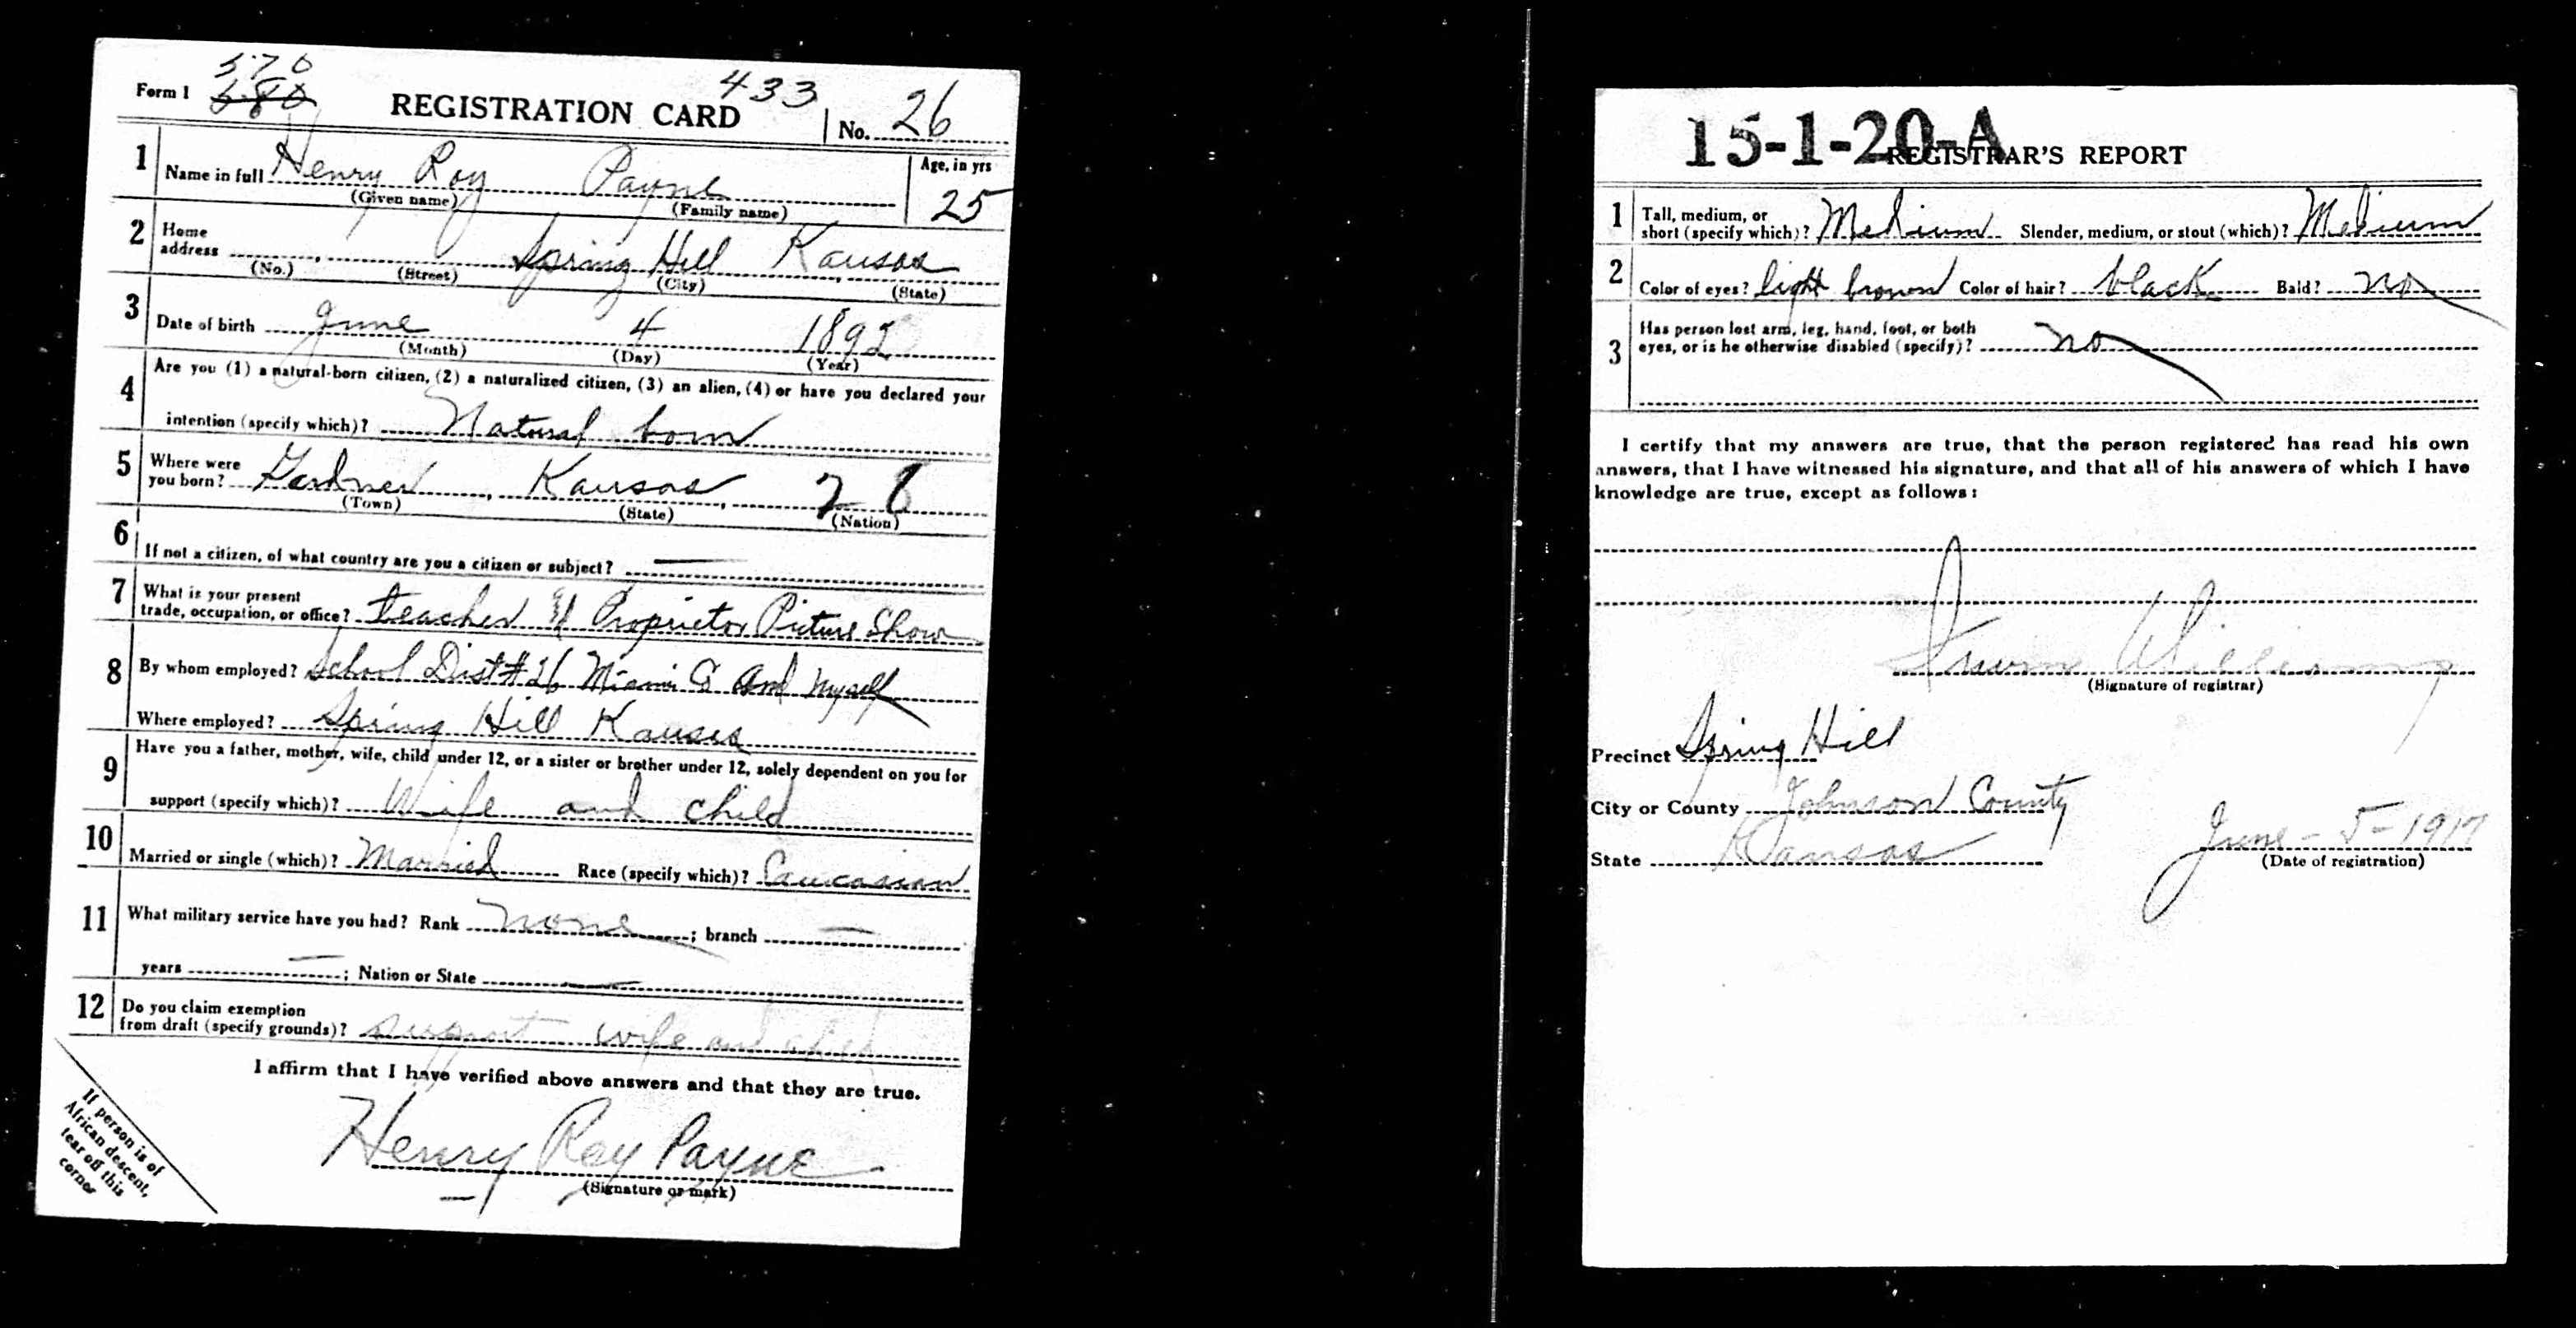 576
Form 1 580 REGISTRATION CARD 433 No. 26
1 Name in full Henry Roy Payne Age, in yrs
(Given name) (Family name) 25
2 Home address Spring Hill Kansas
(No.) (Street) (City) (State)
3 Date of birth June 4 1892
(Month) (Day) (Year)
4 Are you (1) a natural-born citizen, (2) a naturalized citizen, (3) an alien, (4) or have you declared your
intention (specify which)? Natural born
5 Where were you born? Gardner, Kansas,
(Town) (State) (Nation)
6 If not a citizen, of what country are you a citizen or subject? —
7 What is your present
trade, occupation, or office? teacher Proprietor Picture Show
8 By whom employed? School Dist # 26 Miami Co and Myself
Where employed? Spring Hill Kansas
9 Have you a father, mother, wife, child under 12, or a sister or brother under 12, solely dependent on you for
support (specify which)? Wife and child
10 Married or single (which)? Married Race (specify which)? Caucasian
11 What military service have you had? Rank none; branch —
years —; Nation or State —
12 Do you claim exemption
from draft (specify grounds)? support wife and child
I affirm that I have verified above answers and that they are true.
Henry Roy Payne
(Signature or mark)
If person is of
African descent,
tear off this
corner
15-1-20-A
REGISTRAR'S REPORT
1 Tall, medium, or
short (specify which)? Medium Slender, medium, or stout (which)? Medium
2 Color of eyes? light brown Color of hair? black Bald? no
3 Has person lost arm, leg, hand, foot, or both
eyes, or is he otherwise disabled (specify)? no
I certify that my answers are true, that the person registered has read his own
answers, that I have witnessed his signature, and that all of his answers of which I have
knowledge are true, except as follows:
Williams
(Signature of registrar)
Precinct Spring Hill
City or County Johnson County
State Kansas June - 5 - 1917
(Date of registration)